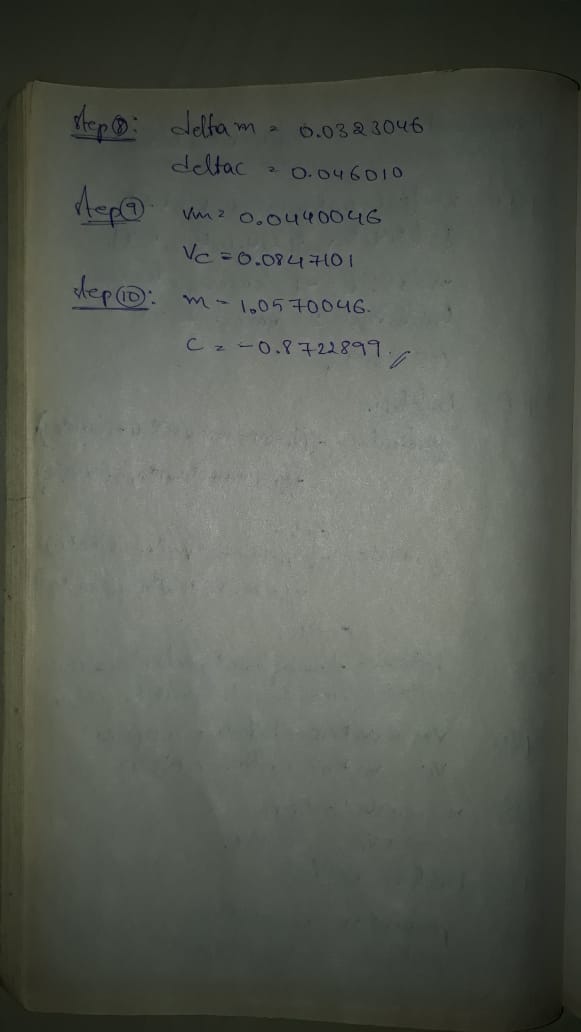 step⑧: delta m = 0.0323046
deltac = 0.046010
step⑨ vm = 0.0440046
Vc = 0.0847101
step⑩: m = 1.0570046.
c = -0.8722899.